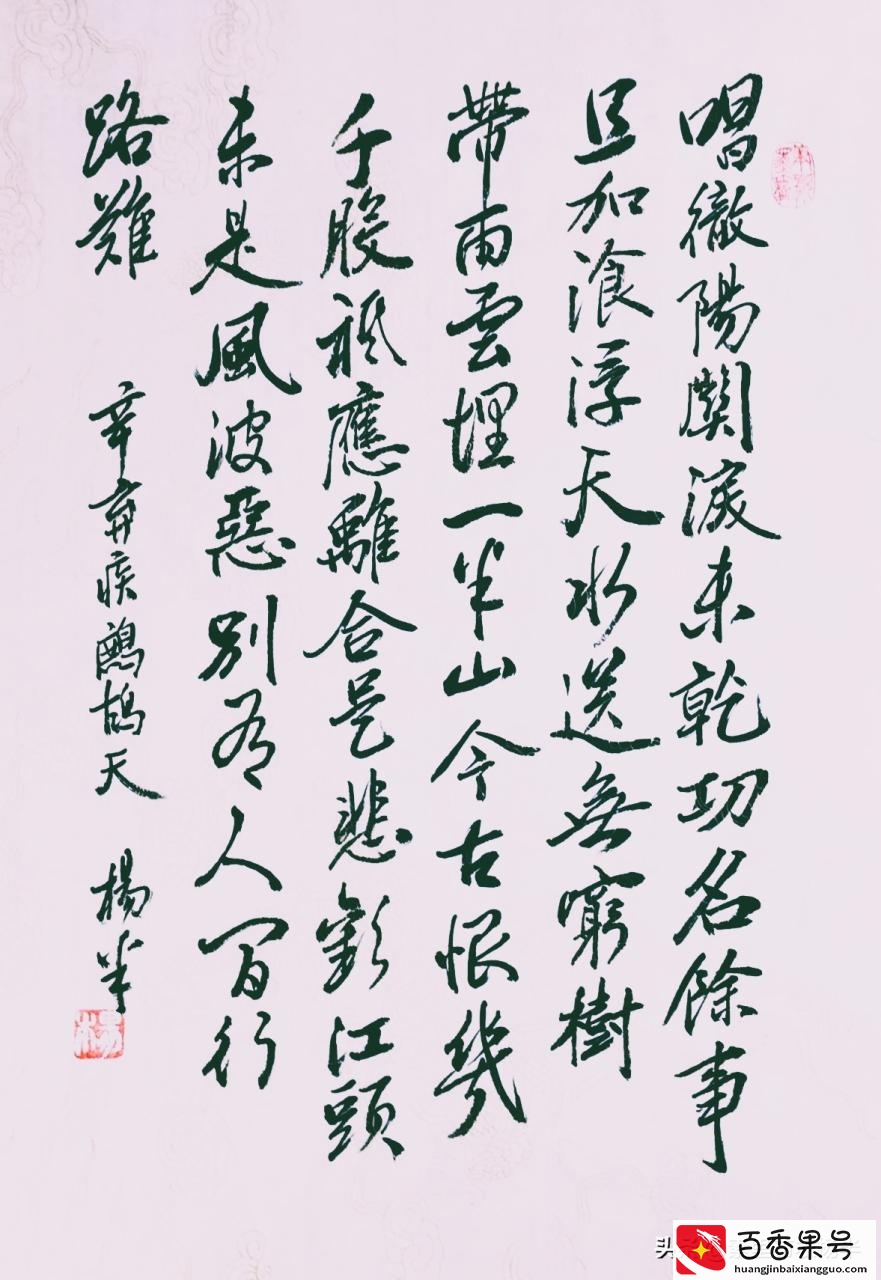 唱徹陽關淚未乾功名餘事
且加湌浮天水送無窮樹
帶雨雲埋一半山今古恨幾
千般祇應離合是悲歡江頭
未是風波惡別有人間行
路難 辛弃疾鷓鴣天 楊半
百香果号
huangjinbaixiangguo.com